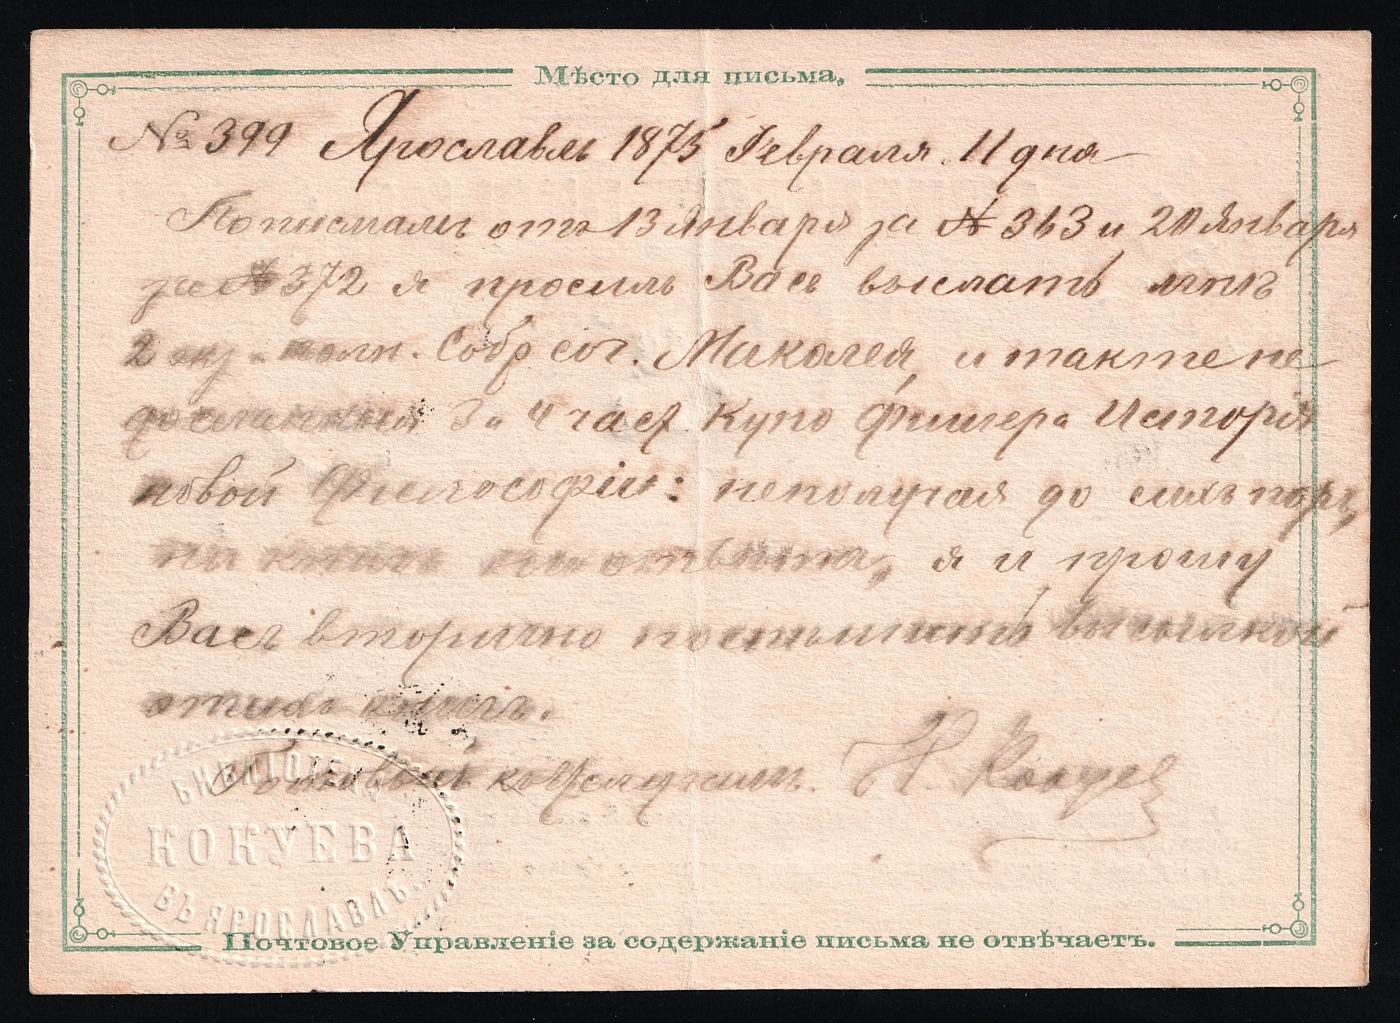 Мѣсто для письма.
№ 399 Ярославль 1875 Февраля 11 дня
По письмамъ отъ 13 Января за № 363 и 20 Января
за № 372 я просилъ Васъ выслать мнѣ
2 экз. полн. Собр соч. Маколея, и также не
досланныя 3 и 4 част Куно Фишера Исторія
новой Философіи: неполучая до сихъ поръ,
ни книгъ ни отвѣта, я и прошу
Васъ вторично поспѣшить высылкой
этихъ книгъ.
Готовый къ услугамъ. Н. Кокуев
БИБЛІОТЕКА
КОКУЕВА
ВЪ ЯРОСЛАВЛѢ.
Почтовое Управленіе за содержаніе письма не отвѣчаетъ.